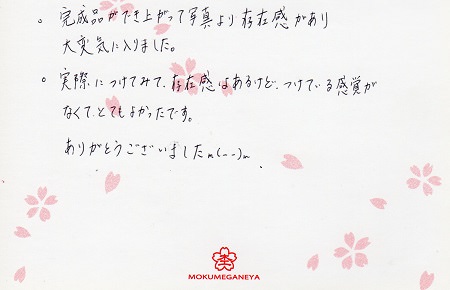 。完成品ができ上がって写真より存在感があり
大変気に入りました。
。実際につけてみて、存在感はあるけど、つけている感覚が
なくて、とてもよかったです。
ありがとうございましたm(--)m
杢
MOKUMEGANEYA